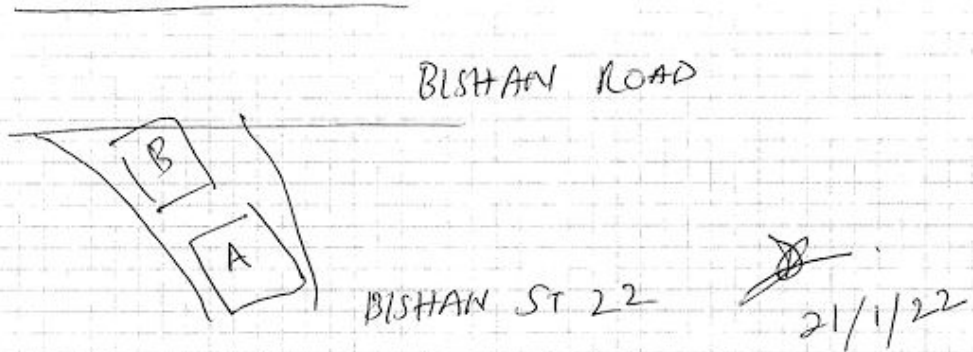 BISHAN ROAD
B
A
BISHAN ST 22
21/1/22